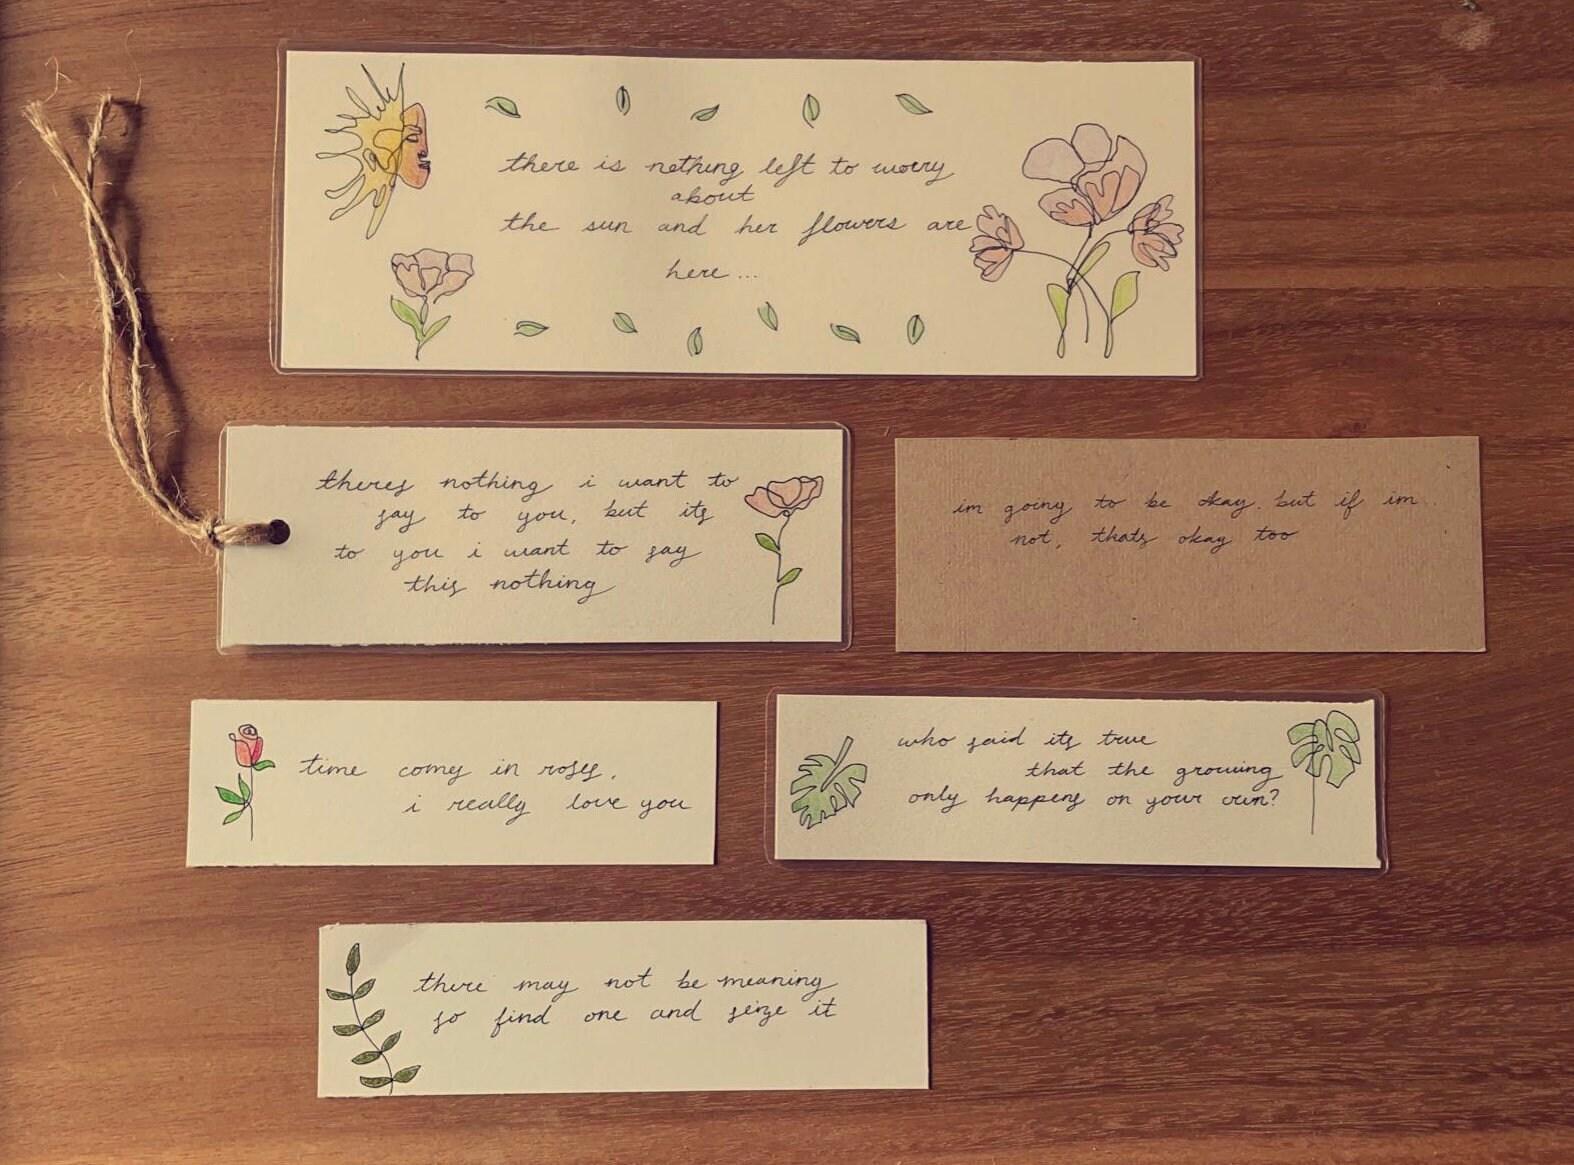 there is nothing left to worry
about
the sun and her flowers are
here...
theres nothing i want to
say to you, but its
to you i want to say
this nothing
im going to be okay. but if im
not, thats okay too
time comes in roses,
i really love you
who said its true
that the growing
only happens on your own?
there may not be meaning
so find one and seize it